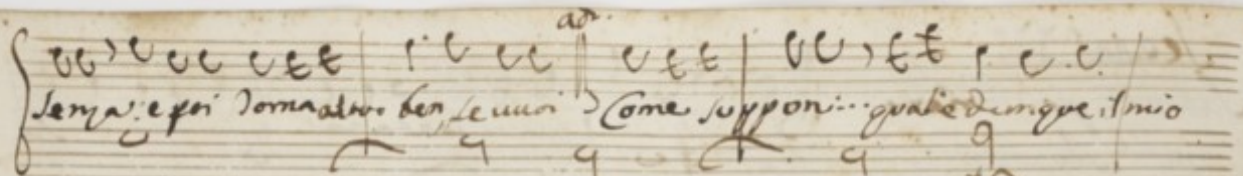 ad.
senza: e poi domanaltro ben, se vuoi Come supponi... qual'è dunque il mio